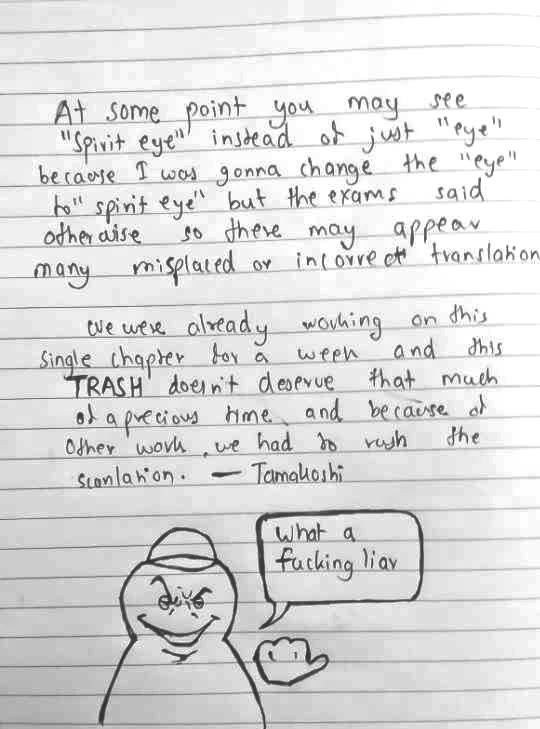 At some point you may see
"Spirit eye" instead of just "eye"
because I was gonna change the "eye"
to "spirit eye" but the exams said
otherwise so there may appear
many misplaced or incorrect translation
We were already working on this
single chapter for a week and this
TRASH doesn't deserve that much
of a precious time and because of
other work, we had to rush the
scanlation. — Tamakoshi
What a
fucking liar